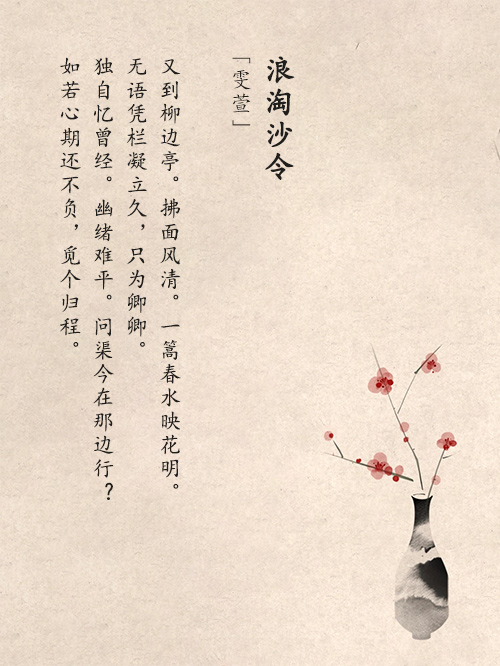 浪淘沙令
「雯萱」
又到柳边亭。拂面风清。一篙春水映花明。
无语凭栏凝立久，只为卿卿。
独自忆曾经。幽绪难平。问渠今在那边行？
如若心期还不负，觅个归程。